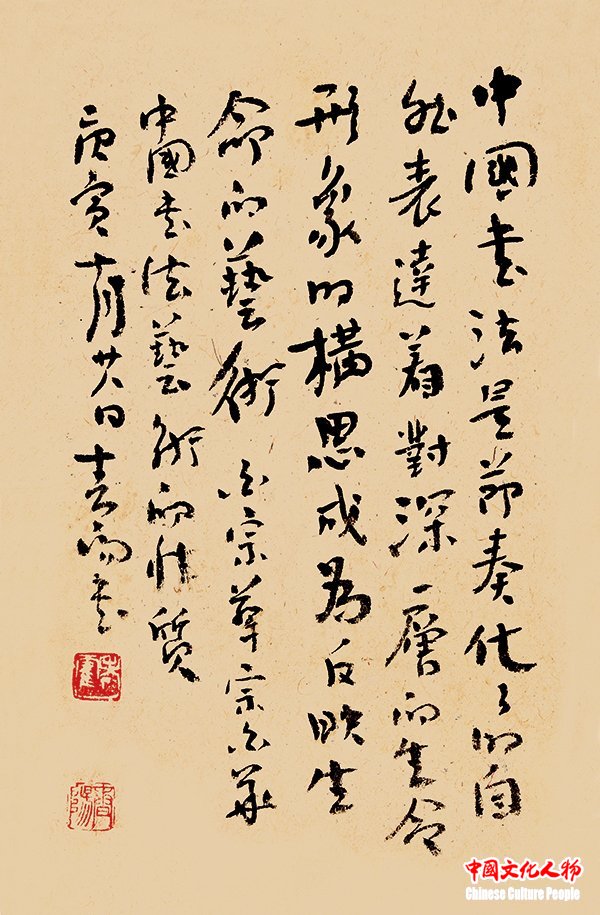 中國書法是節奏化了的自
然表達着對深一層的生命
形象的構思成為反映生
命的藝術 白宗華宗白華
中國書法藝術的性質
庚寅十月廿八日書
中國文化人物
Chinese Culture People